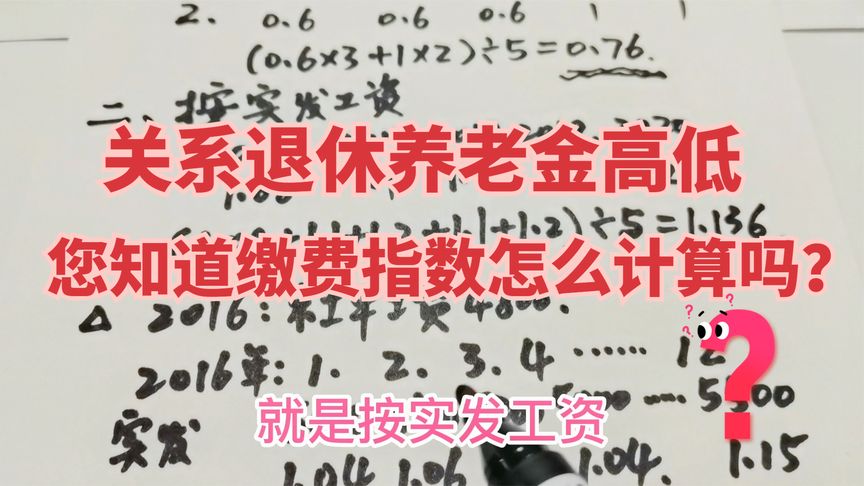 2. 0.6 0.6 0.6 1 1
(0.6×3+1×2)÷5=0.76.
二、按实发工资
关系退休养老金高低
1.1+1.2)÷5=1.136
您知道缴费指数怎么计算吗?
△ 2016: 资4800.
2016年: 1. 2. 3. 4 …… 12
…… 5500
就是按实发工资
实发
1.04 1.06 1.04. 1.15